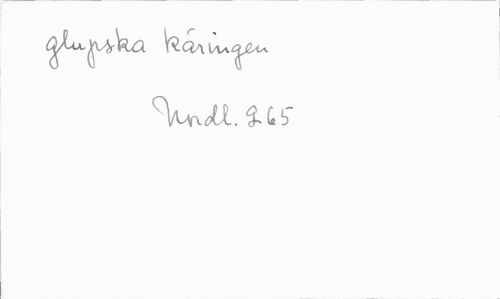 glupska käringen
Nordl. 965